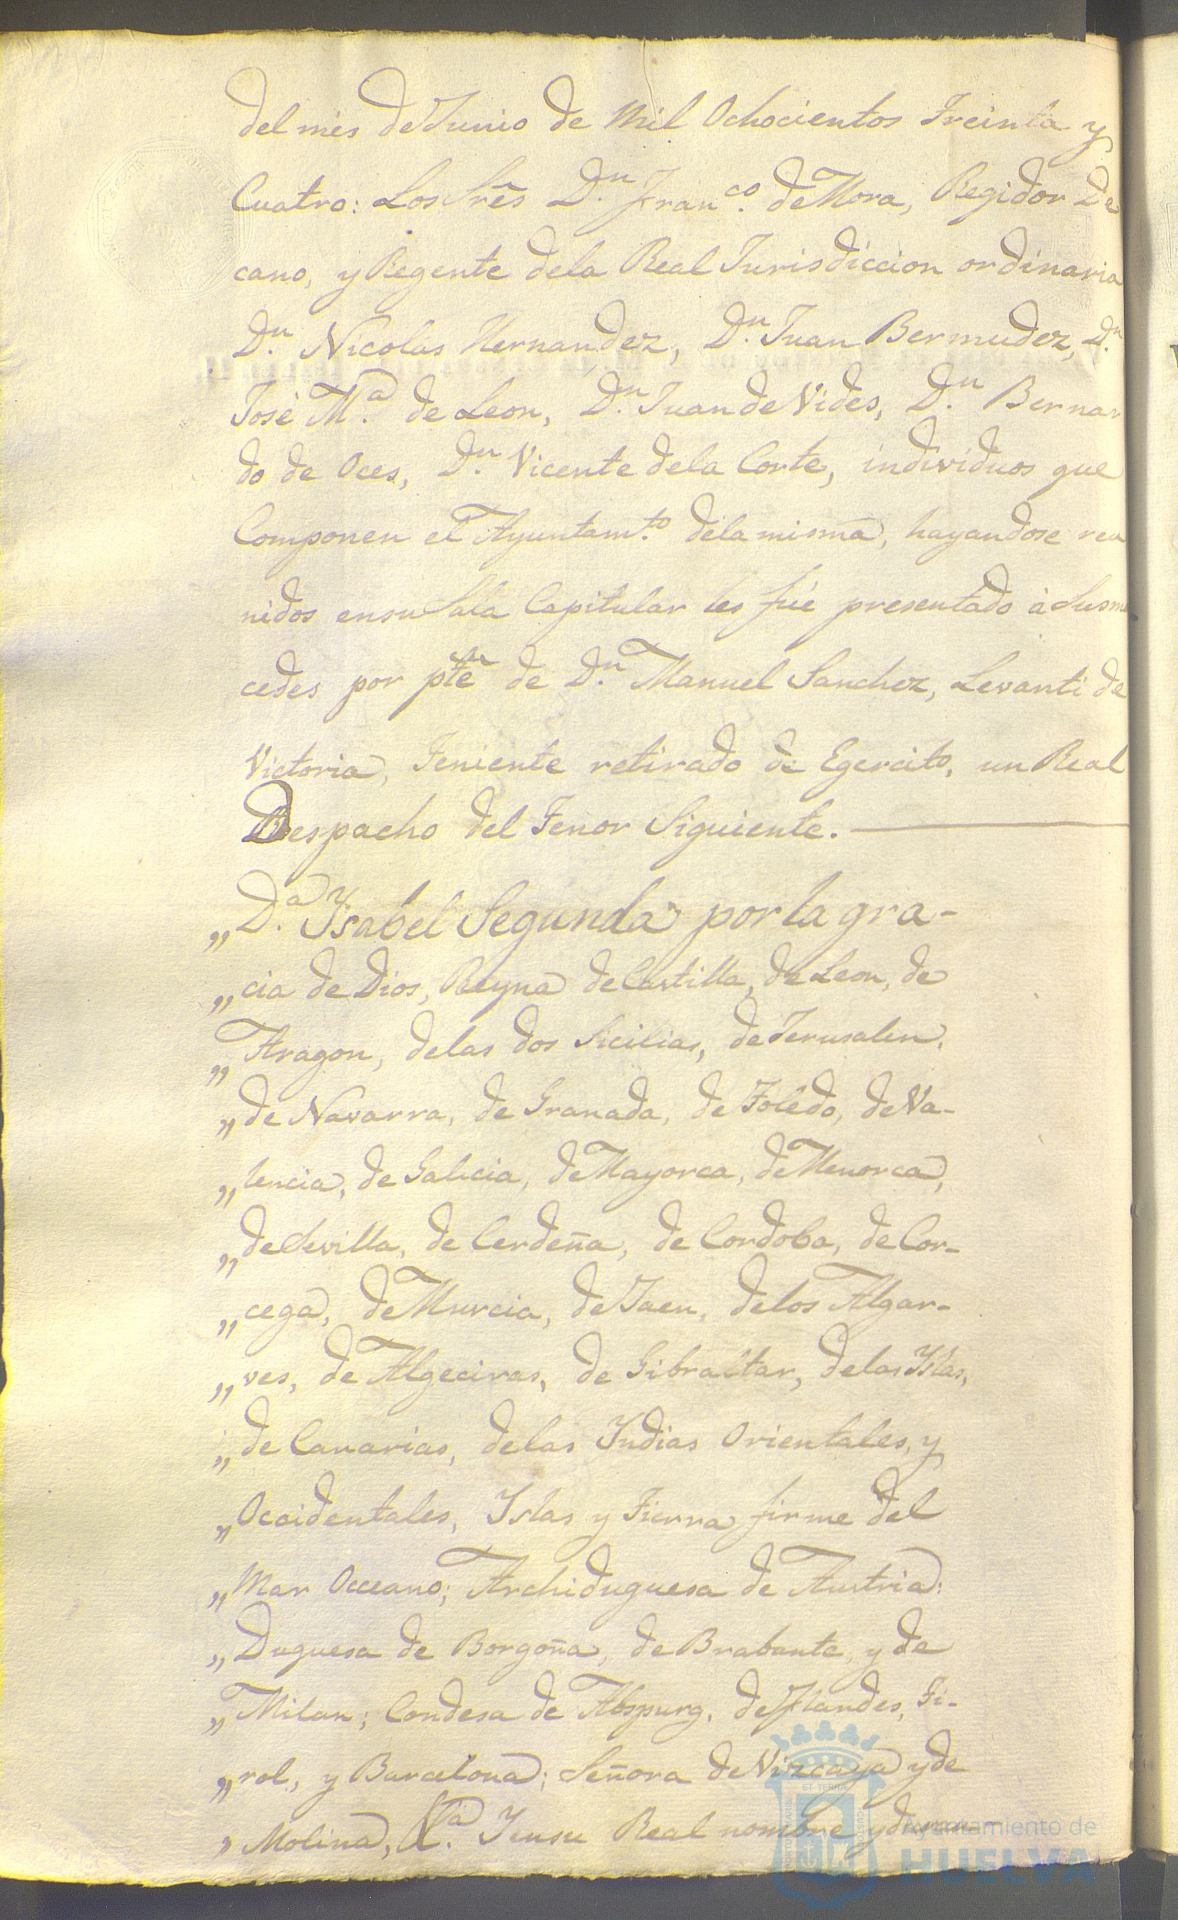 del mes de Junio de Mil Ochocientos Treinta y
Cuatro: Los Srẽs Dⁿ. Franᶜᵒ. de Mora, Regidor De
cano, y Regente dela Real Jurisdiccion ordinaria
Dⁿ. Nicolas Hernandez, Dⁿ. Juan Bermudez, Dⁿ.
Josè Mᵃ. de Leon, Dⁿ. Juan de Vides, Dⁿ. Bernar
do de Oces, Dⁿ. Vicente dela Corte, individuos que
Componen el Ayuntamᵗᵒ. dela misma, hayandose reu
nidos ensu Sala Capitular les fúe presentado à Susme
cedes por pᵗᵉ de Dⁿ. Manuel Sanchez, Levanti de
Victoria, Teniente retirado de Egercito, un Real
Despacho del Tenor Siguiente.
„ Dᵃ. Ysabel Segunda por la gra-
„ cia de Dios, Reyna de Castilla, de Leon, de
„ Aragon, delas dos Sicilias, de Jerusalen,
„ de Navarra, de Granada, de Toledo, de Va-
„ lencia, de Galicia, de Mayorca, de Menorca,
„ de Sevilla, de Cerdeña, de Cordoba, de Cor-
„ cega, de Murcia, de Jaen, delos Algar-
„ ves, de Algeciras, de Gibraltar, delas Yslas,
„ de Canarias, delas Yndias Orientales, y
„ Occidentales, Yslas y Tierra firme del
„ Mar Occeano; Archiduquesa de Austria;
„ Duquesa de Borgoña, de Brabante, y de
„ Milan; Condesa de Abspurg, de Flandes, Ti-
„ rol, y Barcelona; Señora de Vizcaya y de
„ Molina, &ᵃ. Y ensu Real nombre
Ayuntamiento de
HUELVA